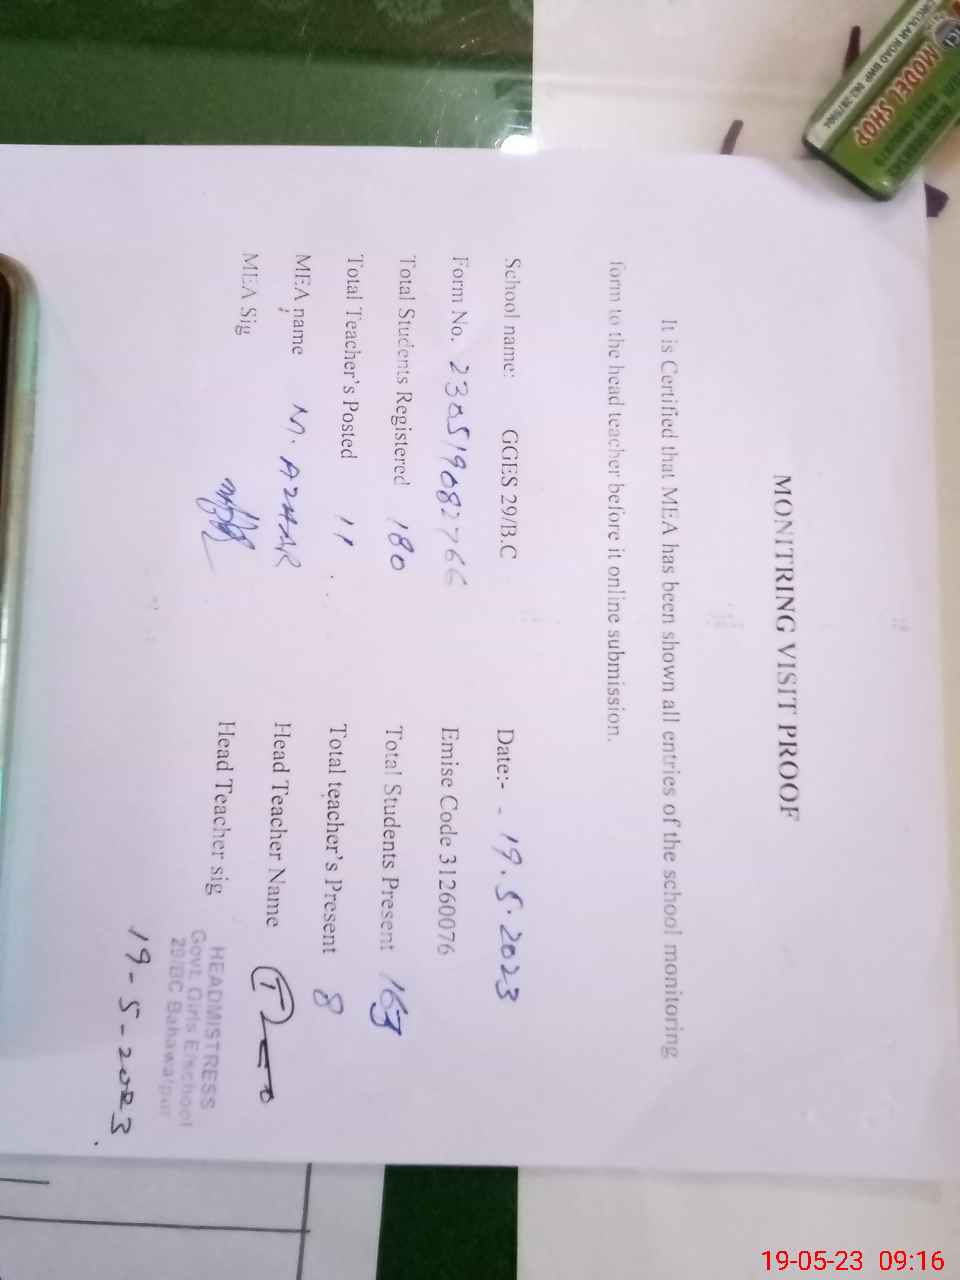 MONITRING VISIT PROOF
It is Certified that MEA has been shown all entries of the school monitoring
form to the head teacher before it online submission.
School name: GGES 29/B.C Date:- - 19.5.2023
Form No. 230519082766 Emise Code 31260076
Total Students Registered 180 Total Students Present
Total Teacher's Posted 11 Total teacher's Present 8
MEA name M. AZHAR Head Teacher Name
MEA Sig Head Teacher sig
HEADMISTRESS
Govt. Girls E/school
29/BC Bahawalpur
19-5-2023.
MODEL SHOP
CIRCULAR ROAD BWP
19-05-23 09:16